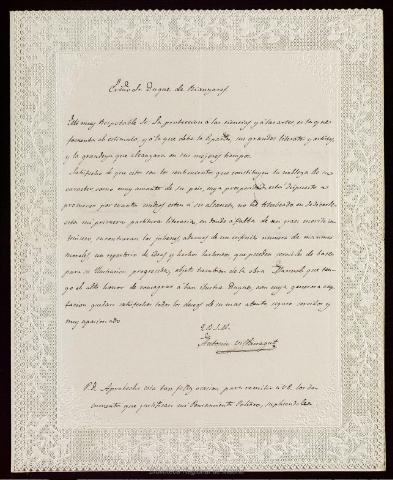 Exmo Sr. Duque de Rianzares
Este muy Respetable Sr. La proteccion a las ciencias y a las artes, es la que
fomenta el estimulo, y a la que debe la España sus grandes literatos y artistas,
y la grandeza que alcanzara en sus mejores tiempos.
Satisfecho de que estos son los sentimientos que constituyen la nobleza de su
caracter como muy amante de su pais, cuya prosperidad está dispuesto a
promover por cuantos medios esten a su alcance, no he titubeado en dedicarle
esta mi primera partitura literaria, en donde a falta de un gran merito en
musica, encontraran los jobenes ademas de un infinito numero de maximas
morales, un repertorio de ideas y hechos historicos que pueden servirles de base
para su ilustracion progresiva, objeto tambien de la obra que ten-
go el alto honor de consagrar a tan ilustre Duque, con cuya generosa acep-
tacion quedan satisfechos todos los deseos de su mas atento seguro servidor y
muy apasionado
Q.B.S.M.
Antonio
P.D. Aprobecho esta tan feliz ocasion para remitir a V.E. los do-
cumentos que justifican mi Pensamiento Politico, suplicandole